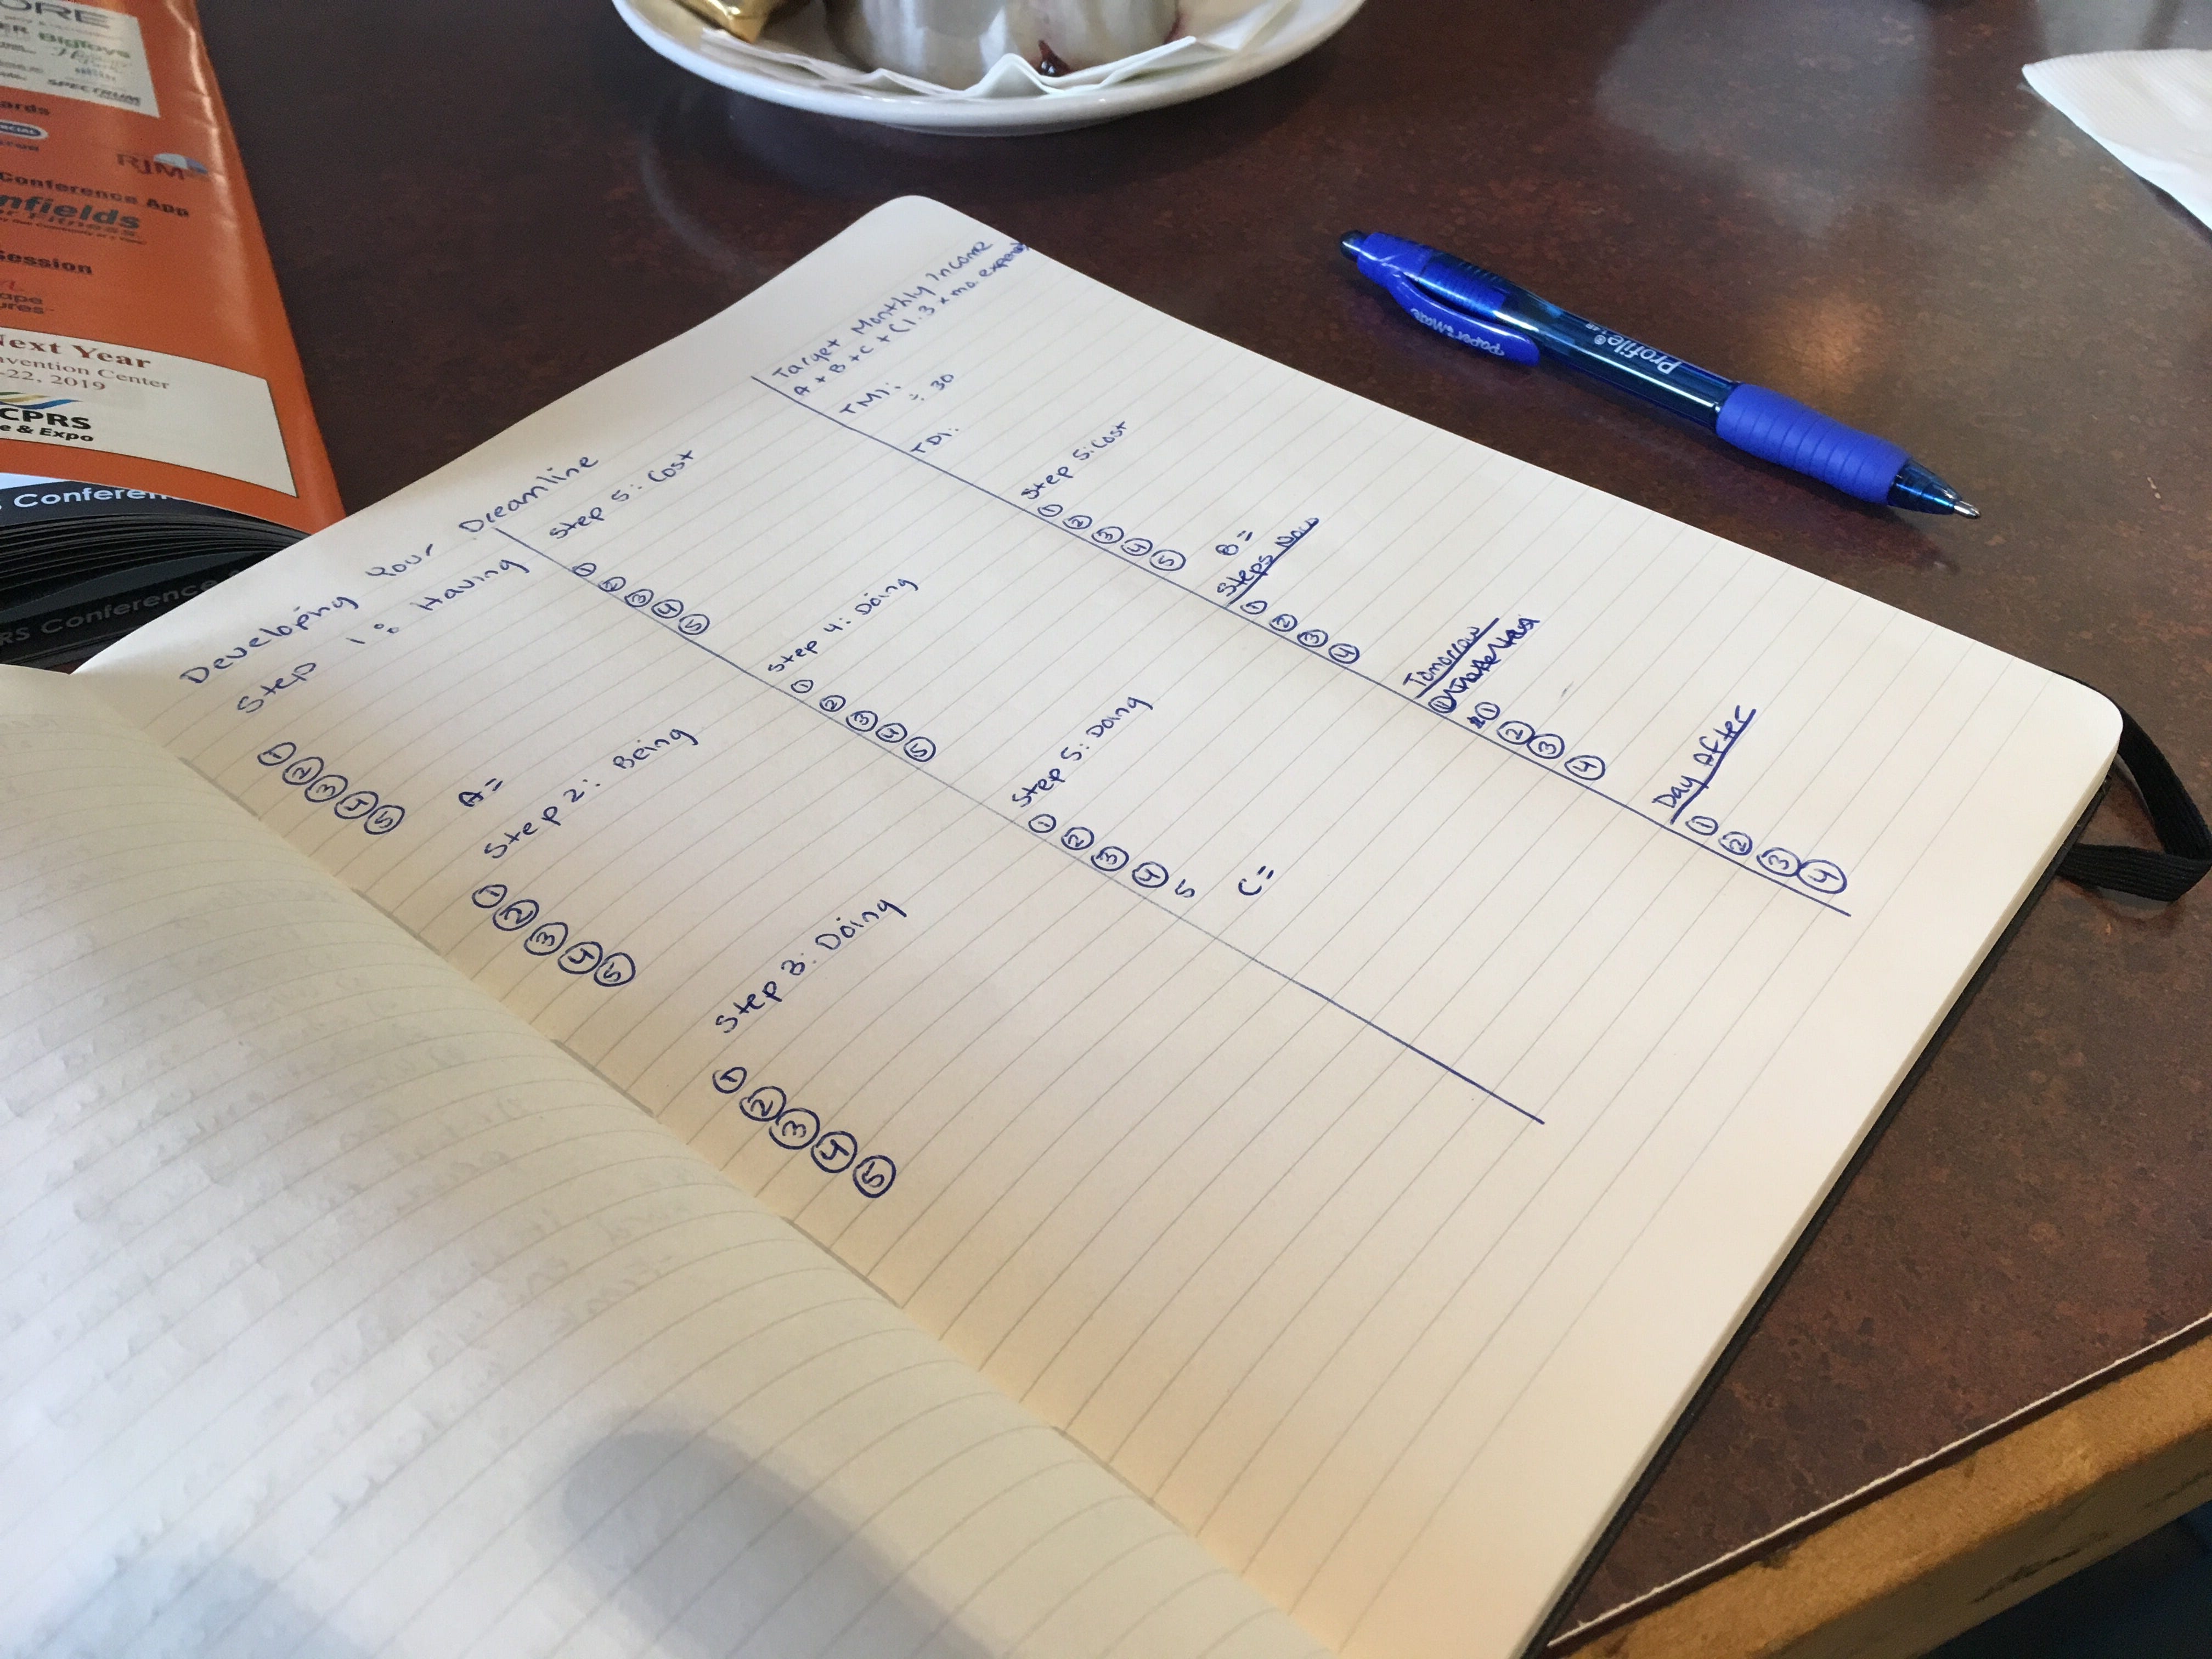 Developing Your Dreamline
Step 1: Having
①
②
③
④
⑤
A=
Step 2: Being
①
②
③
④
⑤
Step 3: Doing
①
②
③
④
⑤
Step 5: Cost
①
②
③
④
⑤
Step 4: Doing
①
②
③
④
⑤
Step 5: Doing
①
②
③
④
5
C=
Target Monthly Income
A + B + C + (1.3 x mo. expenses)
TMI:
÷ 30
TDI:
Step 5: Cost
①
②
③
④
⑤
B=
Steps Now
①
②
③
④
Tomorrow
①
①
②
③
④
Day After
①
②
③
④
Paper Mate
Profile®
ORE
ER
BigToys
SPECTRUM
ards
RJM
Conference App
nfields
or Fitness
Session
ape
ures
Next Year
vention Center
-22, 2019
CPRS
e & Expo
S Conferen
RS Conference